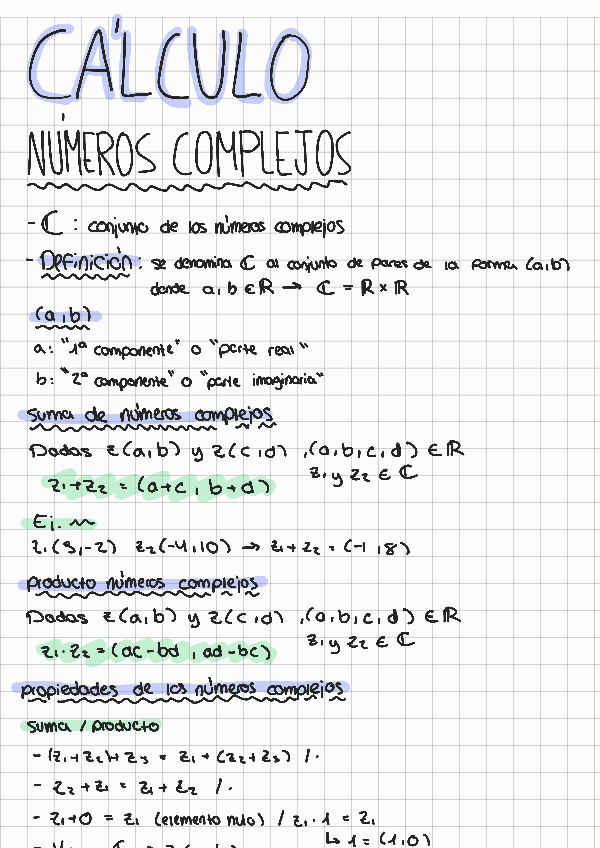 CÁLCULO
NÚMEROS COMPLEJOS
- ℂ : conjunto de los números complejos
- Definición: se denomina ℂ al conjunto de pares de la forma (a,b)
donde a,b ∈ ℝ → ℂ = ℝ × ℝ
(a,b)
a: "1ª componente" o "parte real"
b: "2ª componente" o "parte imaginaria"
suma de números complejos
Dados z(a,b) y z(c,d) ,(a,b,c,d) ∈ ℝ
z₁ y z₂ ∈ ℂ
z₁+z₂ = (a+c, b+d)
Ej.
z₁(3,-2) z₂(-4,10) → z₁+z₂ = (-1,8)
producto números complejos
Dados z(a,b) y z(c,d) ,(a,b,c,d) ∈ ℝ
z₁ y z₂ ∈ ℂ
z₁·z₂ = (ac-bd, ad-bc)
propiedades de los números complejos
suma / producto
- (z₁+z₂)+z₃ = z₁+(z₂+z₃) /·
- z₂+z₁ = z₁+z₂ /·
- z₁+0 = z₁ (elemento nulo) / z₁·1 = z₁
↳ 1 = (1,0)